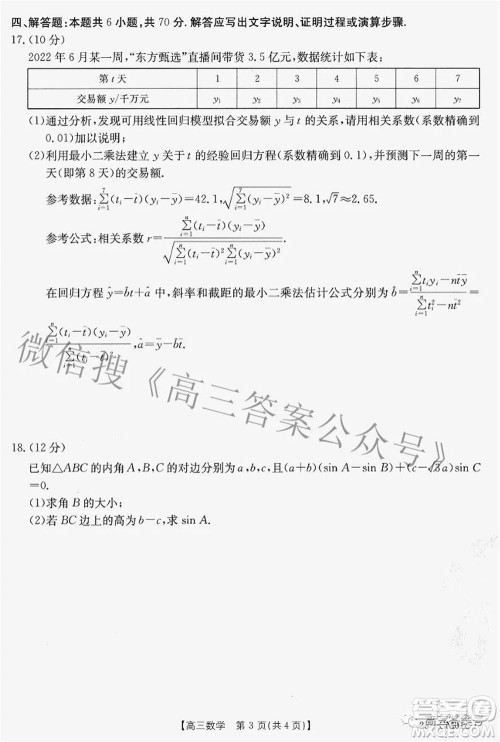 四、解答题:本题共 6 小题,共 70 分. 解答应写出文字说明、证明过程或演算步骤.
17.(10 分)
2022 年 6 月某一周,“东方甄选”直播间带货 3.5 亿元,数据统计如下表:
第 t 天 1 2 3 4 5 6 7
交易额/千万元 y₁ y₂ y₃ y₄ y₅ y₆ y₇
(1)通过分析,发现可用线性回归模型拟合交易额 y 与 t 的关系,请用相关系数(系数精确到
0.01)加以说明;
(2)利用最小二乘法建立 y 关于 t 的经验回归方程(系数精确到 0.1),并预测下一周的第一
天(即第 8 天)的交易额.
参考数据:∑_{i=1}^{7}(tᵢ-t̄)(yᵢ-ȳ)=42.1,√(∑_{i=1}^{7}(yᵢ-ȳ)²)=8.1,√7≈2.65.
参考公式:相关系数 r=∑_{i=1}^{n}(tᵢ-t̄)(yᵢ-ȳ)/√(∑_{i=1}^{n}(tᵢ-t̄)²∑_{i=1}^{n}(yᵢ-ȳ)²).
在回归方程 ŷ=b̂t+â 中,斜率和截距的最小二乘法估计公式分别为 b̂=(∑_{i=1}^{n}tᵢyᵢ-nt̄ȳ)/(∑_{i=1}^{n}tᵢ²-nt̄²)
=∑_{i=1}^{n}(tᵢ-t̄)(yᵢ-ȳ)/∑_{i=1}^{n}(tᵢ-t̄)²,â=ȳ-b̂t̄.
微信搜《高三答案公众号》
18.(12 分)
已知△ABC 的内角 A,B,C 的对边分别为 a,b,c,且(a+b)(sin A-sin B)+(c-√3a)sin C
=0.
(1)求角 B 的大小;
(2)若 BC 边上的高为 b-c,求 sin A.
【高三数学 第 3 页(共 4 页)】
答案圈
MXQE.COM